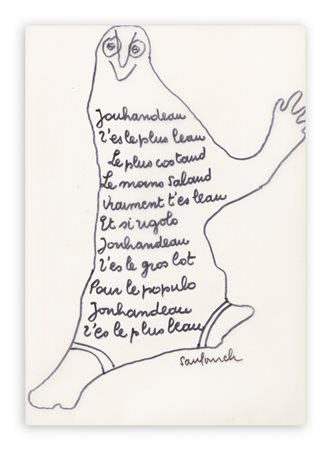 Jouhandeau
T'es le plus beau
Le plus costaud
Le moins salaud
Vraiment t'es beau
Et si rigolo
Jouhandeau
T'es le gros lot
Pour le populo
Jouhandeau
T'es le plus beau